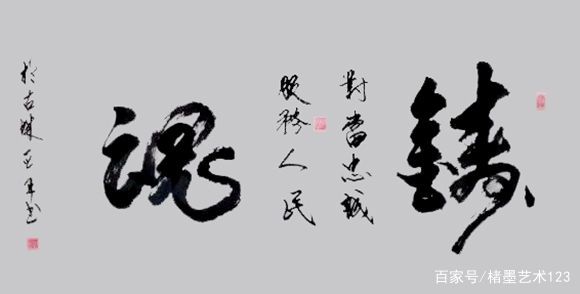 鑄
對黨忠誠
服務人民
魂
百家号/楮墨艺术123